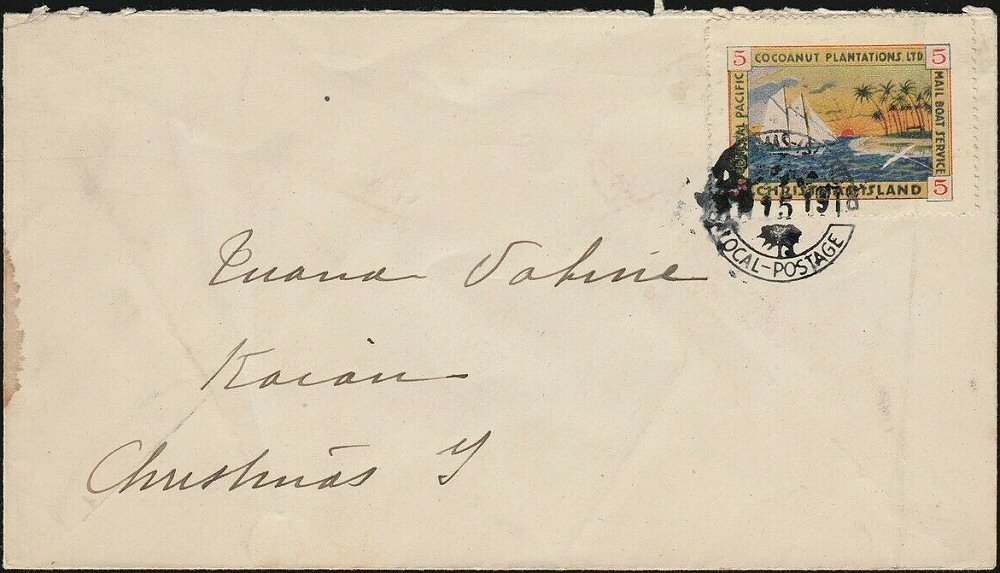 5 COCOANUT PLANTATIONS LTD. 5
CENTRAL PACIFIC
MAIL BOAT SERVICE
CHRISTMAS ISLAND 5
15 1918
LOCAL-POSTAGE
Vahine
Christmas I